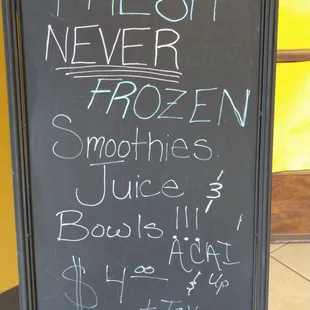 FRESH
NEVER
FROZEN
Smoothies
Juice &
Bowls !!!
AÇAI
$4.00 & up
+ Tax